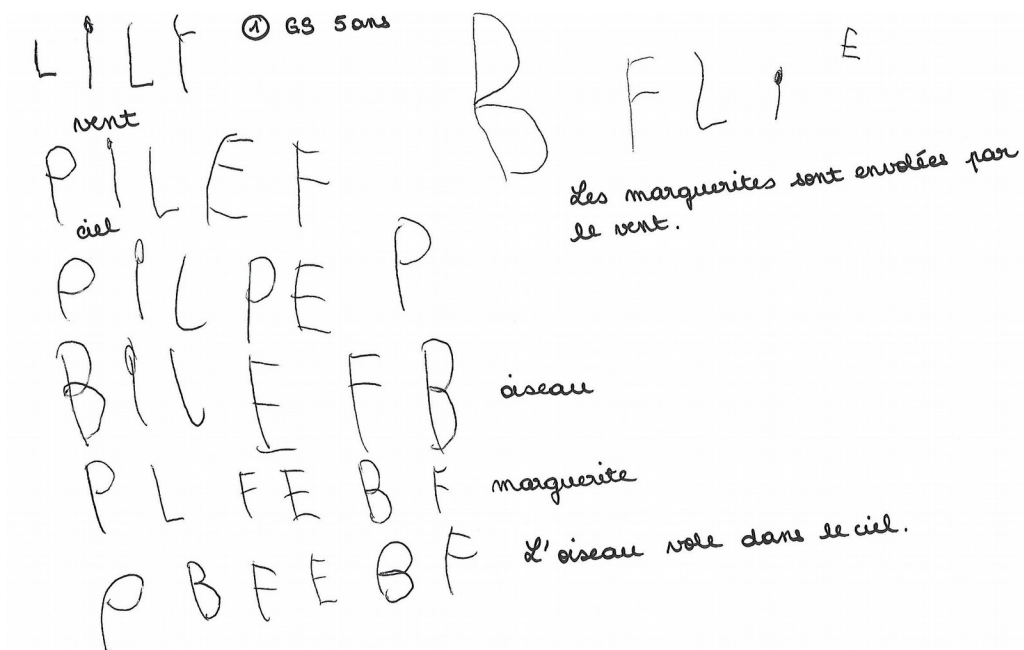 ① GS 5ans
LILF
vent
PILEF
ciel
PILPE P
BILEFB oiseau
PLFEBF marguerite
PBFEBF L'oiseau vole dans le ciel.
BFLi E
Les marguerites sont envolées par
le vent.